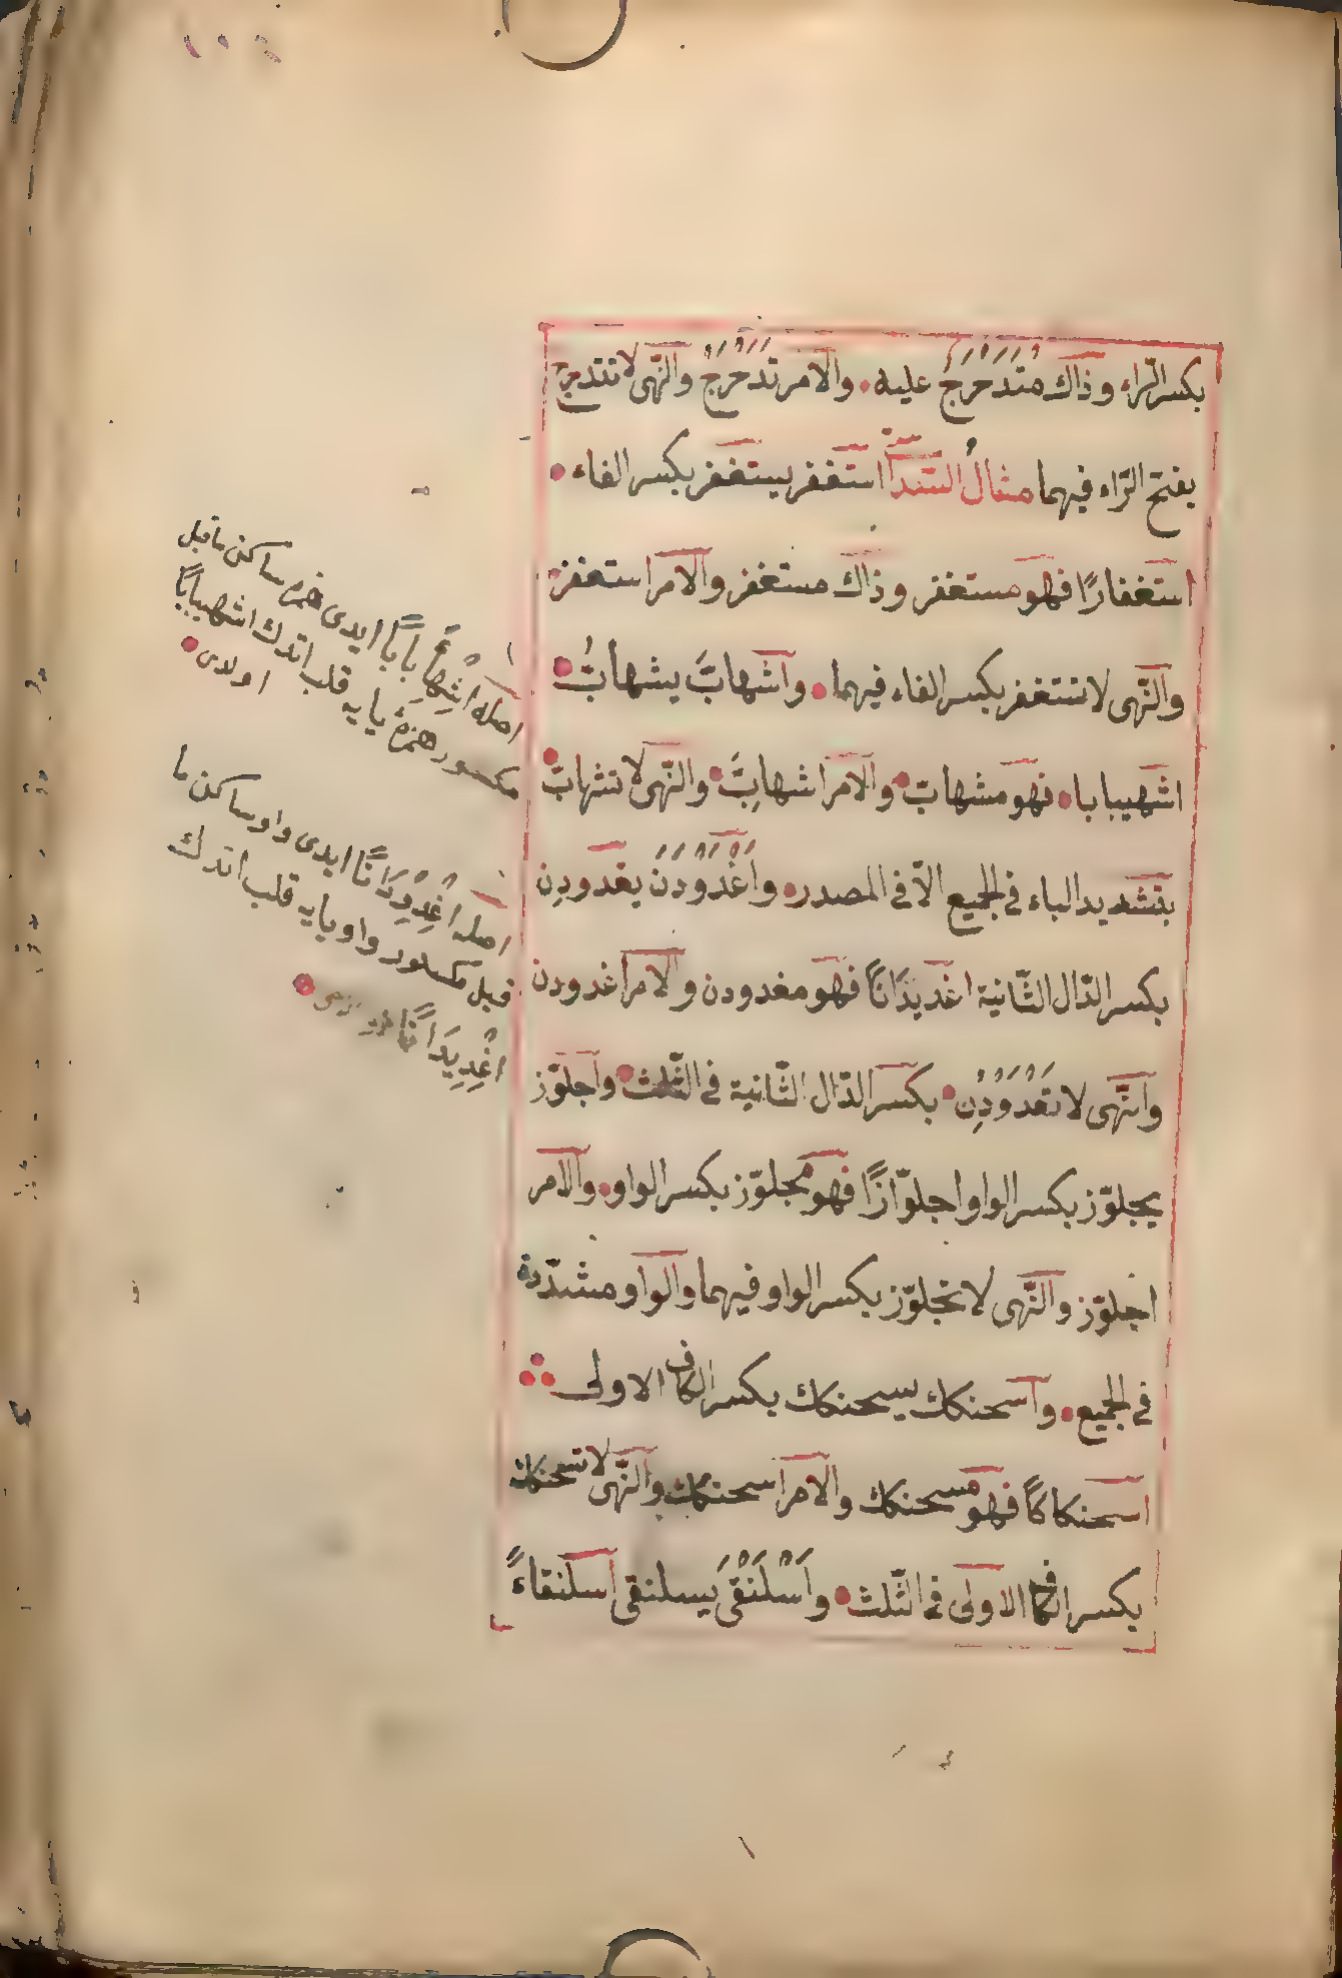 بكسر الرّاء وذاك مُتَدَحْرَجٌ عليه والامر تَدَحْرَجْ والنّهى لا تتدحرج
بفتح الرّاء فيهما مثالُ السّداسىّ استغفر يستغفر بكسر الفاء
استغفارًا فهو مستغفر وذاك مستغفر والامر استغفر
والنّهى لا تستغفر بكسر الفاء فيهما واشهابَّ يشهابُّ
اشهيبابا فهو مشهابّ والامر اشهابِّ والنّهى لا تشهابّ
بتشديد الباء فى الجميع الاّ فى المصدر واغْدَوْدَنَ يغدودِن
بكسر الدّال الثّانية اغديدَانًا فهو مغدودن والامر اغدودن
والنّهى لا تَغْدَوْدِنْ بكسر الدّال الثّانية فى الثّلث واجلوّز
يجلوّز بكسر الواو اجلوّازًا فهو مجلوّز بكسر الواو والامر
اجلوّز والنّهى لا تجلوّز بكسر الواو فيهما والواو مشدّدة
فى الجميع واسحنكك يسحنكك بكسر الكاف الاولى
اسحنكاكًا فهو مسحنكك والامر اسحنكك والنّهى لا تسحنكك
بكسر الكاف الاولى فى الثّلث واسْلَنْقَىَ يسلنقى اسلنقاءً
اصله اشْهِأْبِابًا ايدى همزه ساكن ما قبل
مكسور همزۀ يايه قلب اتدك اشهيبابًا
اولدى
اصله اغْدِوْدَانًا ايدى واو ساكن ما
قبل مكسور واو يايه قلب اتدك
اغْدِيدَانًا